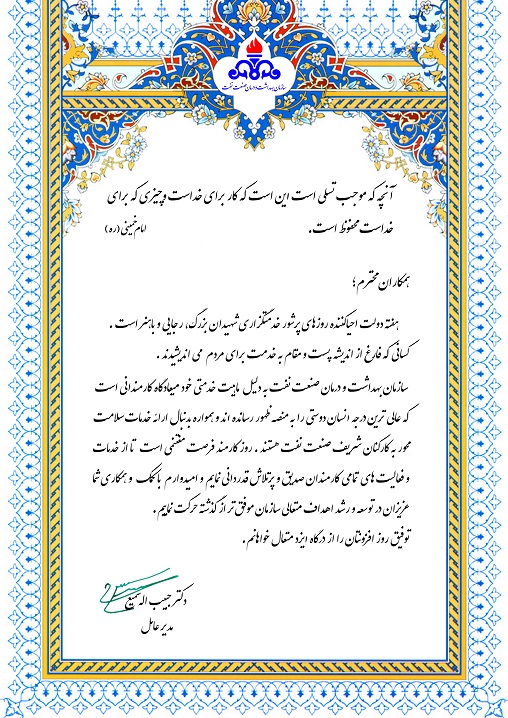 سازمان بهداشت و درمان صنعت نفت
آنچه که موجب تسلی است این است که کار برای خداست و چیزی که برای
خداست محفوظ است.
امام خمینی (ره)
همکاران محترم؛
هفته دولت احیاکننده روزهای پرشور خدمتگزاری شهیدان بزرگ، رجایی و باهنر است.
کسانی که فارغ از اندیشه پست و مقام به خدمت برای مردم می اندیشیدند.
سازمان بهداشت و درمان صنعت نفت به دلیل ماهیت خدمتی خود میعادگاه کارمندانی است
که عالی ترین درجه انسان دوستی را به منصه ظهور رسانده اند و همواره بدنبال ارائه خدمات سلامت
محور به کارکنان شریف صنعت نفت هستند. روز کارمند فرصت مغتنمی است تا از خدمات
و فعالیت های تمامی کارمندان صدیق و پرتلاش قدردانی نمایم و امیدوارم با کمک و همکاری شما
عزیزان در توسعه و رشد اهداف متعالی سازمان موفق تر از گذشته حرکت نمایم.
توفیق روز افزونتان را از درگاه ایزد متعال خواهانم.
دکتر حبیب اله سمیع
مدیر عامل